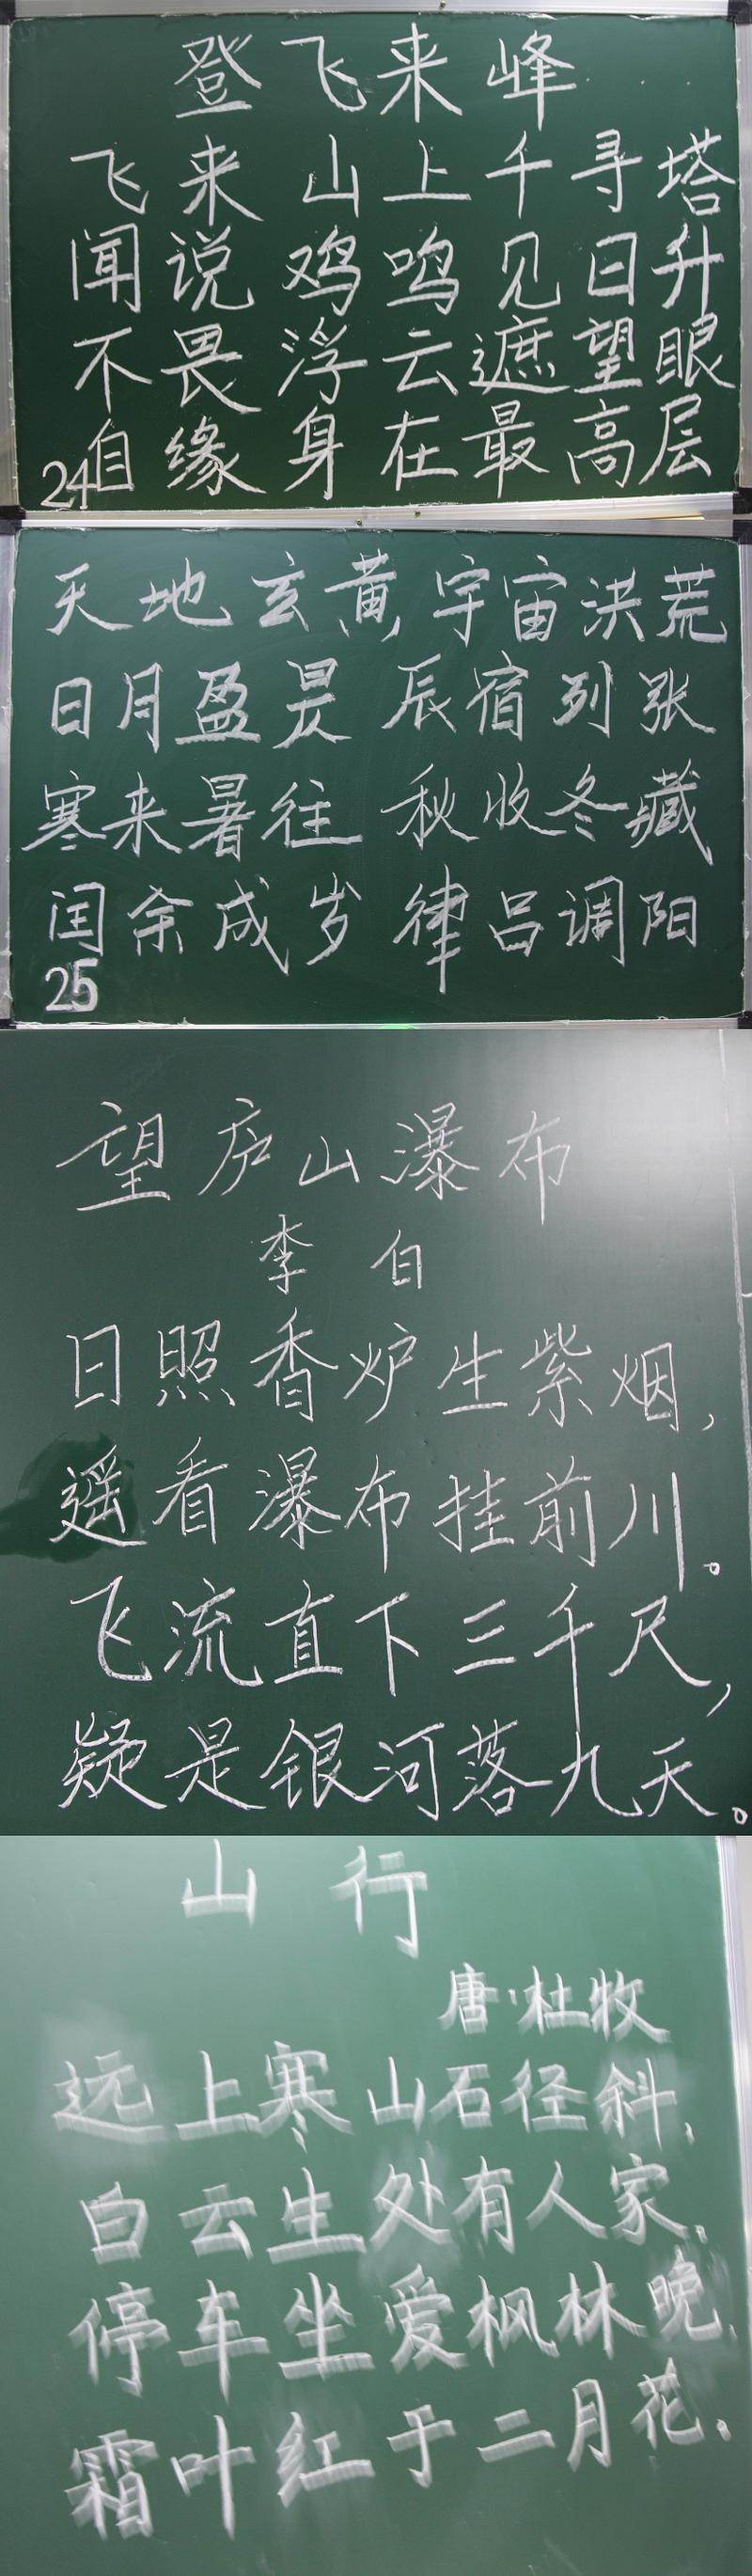 登飞来峰
飞来山上千寻塔
闻说鸡鸣见日升
不畏浮云遮望眼
自缘身在最高层
24
天地玄黄,宇宙洪荒
日月盈昃 辰宿列张
寒来暑往 秋收冬藏
闰余成岁 律吕调阳
25
望庐山瀑布
李白
日照香炉生紫烟,
遥看瀑布挂前川。
飞流直下三千尺,
疑是银河落九天。
山行
唐·杜牧
远上寒山石径斜,
白云生处有人家.
停车坐爱枫林晚,
霜叶红于二月花.